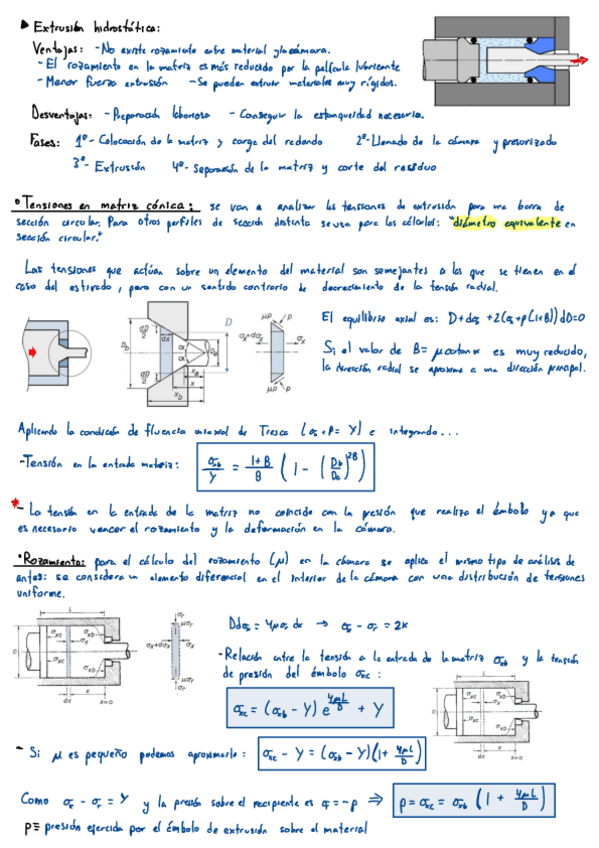 ▶ Extrusión hidrostática:
Ventajas: - No existe rozamiento entre material y la cámara.
- El rozamiento en la matriz es más reducido por la película lubricante
- Menor fuerza extrusión - Se pueden extruir materiales muy rígidos.
Desventajas: - Preparación laboriosa - Conseguir la estanqueidad necesaria.
Fases: 1º- Colocación de la matriz y carga del redondo 2º- Llenado de la cámara y presorizado
3º- Extrusión 4º- Separación de la matriz y corte del residuo
• Tensiones en matriz cónica: se van a analizar las tensiones de extrusión para una barra de
sección circular. Para otros perfiles de sección distinta se usa para los cálculos: "diámetro equivalente en
sección circular."
Las tensiones que actúan sobre un elemento del material son semejantes a las que se tienen en el
caso del estirado, pero con un sentido contrario de decrecimiento de la tensión radial.
El equilibrio axial es: D+dσx + 2(σx+p(1+B))dD=0
Si el valor de B= μcotanα es muy reducido,
la dirección radial se aproxima a una dirección principal.
Aplicando la condición de fluencia uniaxial de Tresca (σx+P= Y) e integrando...
- Tensión en la entrada matriz: σxb/Y = 1+B/B (1 - (Db/Do)^2B)
* - La tensión en la entrada de la matriz no coincide con la presión que realiza el émbolo ya que
es necesario vencer el rozamiento y la deformación en la cámara.
• Rozamiento: para el cálculo del rozamiento (μ) en la cámara se aplica el mismo tipo de análisis de
antes: se considera un elemento diferencial en el interior de la cámara con una distribución de tensiones
uniforme.
Ddσx = 4μσr dx → σx - σr = 2K
- Relación entre la tensión a la entrada de la matriz σxb y la tensión
de presión del émbolo σxc:
σxc = (σxb - Y) e^4μL/D + Y
- Si μ es pequeño podemos aproximarlo: σxc - Y = (σxb - Y)(1+ 4μL/D)
Como σx - σr = Y y la presión sobre el recipiente es σr=-p ⇒ p = σxc = σxb (1 + 4μL/D)
p≡ presión ejercida por el émbolo de extrusión sobre el material